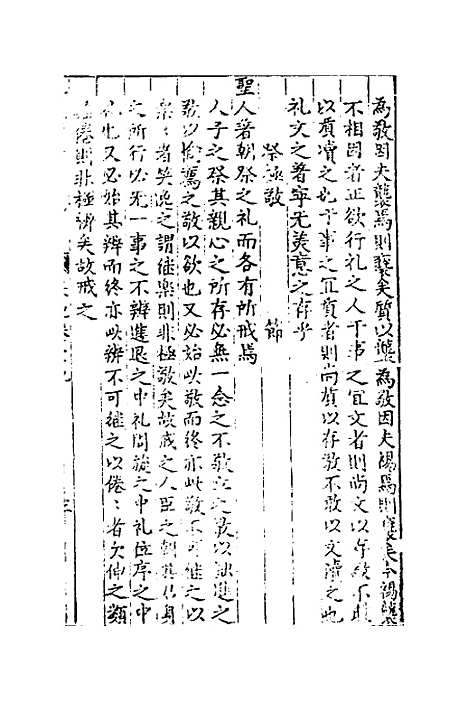 為敬因夫襲焉則褻矣質以襲為敬因夫裼焉則褻矣今裼襲
不相因者正欲行礼之人于事之宜文者則尚文以存敬不敢
以質凟之也于事之宜質者則尚質以存敬不敢以文凟之也
礼文之著寧无美意之存乎
祭極敬 節
聖人著朝祭之礼而各有所戒焉
人子之祭其親心之所存必無一念之不敬立之敬以詘進之
敬以愉薦之敬以欲也又必始以敬而終亦以敬不可継之以
樂〻者笑逸之謂継樂則非極敬矣故戒之人臣之朝其君身
之所行必无一事之不辨進退之中礼周旋之中礼位序之中
礼也又必始其辨而終亦以辨不可継之以倦〻者欠伸之類
倦則非極辨矣故戒之